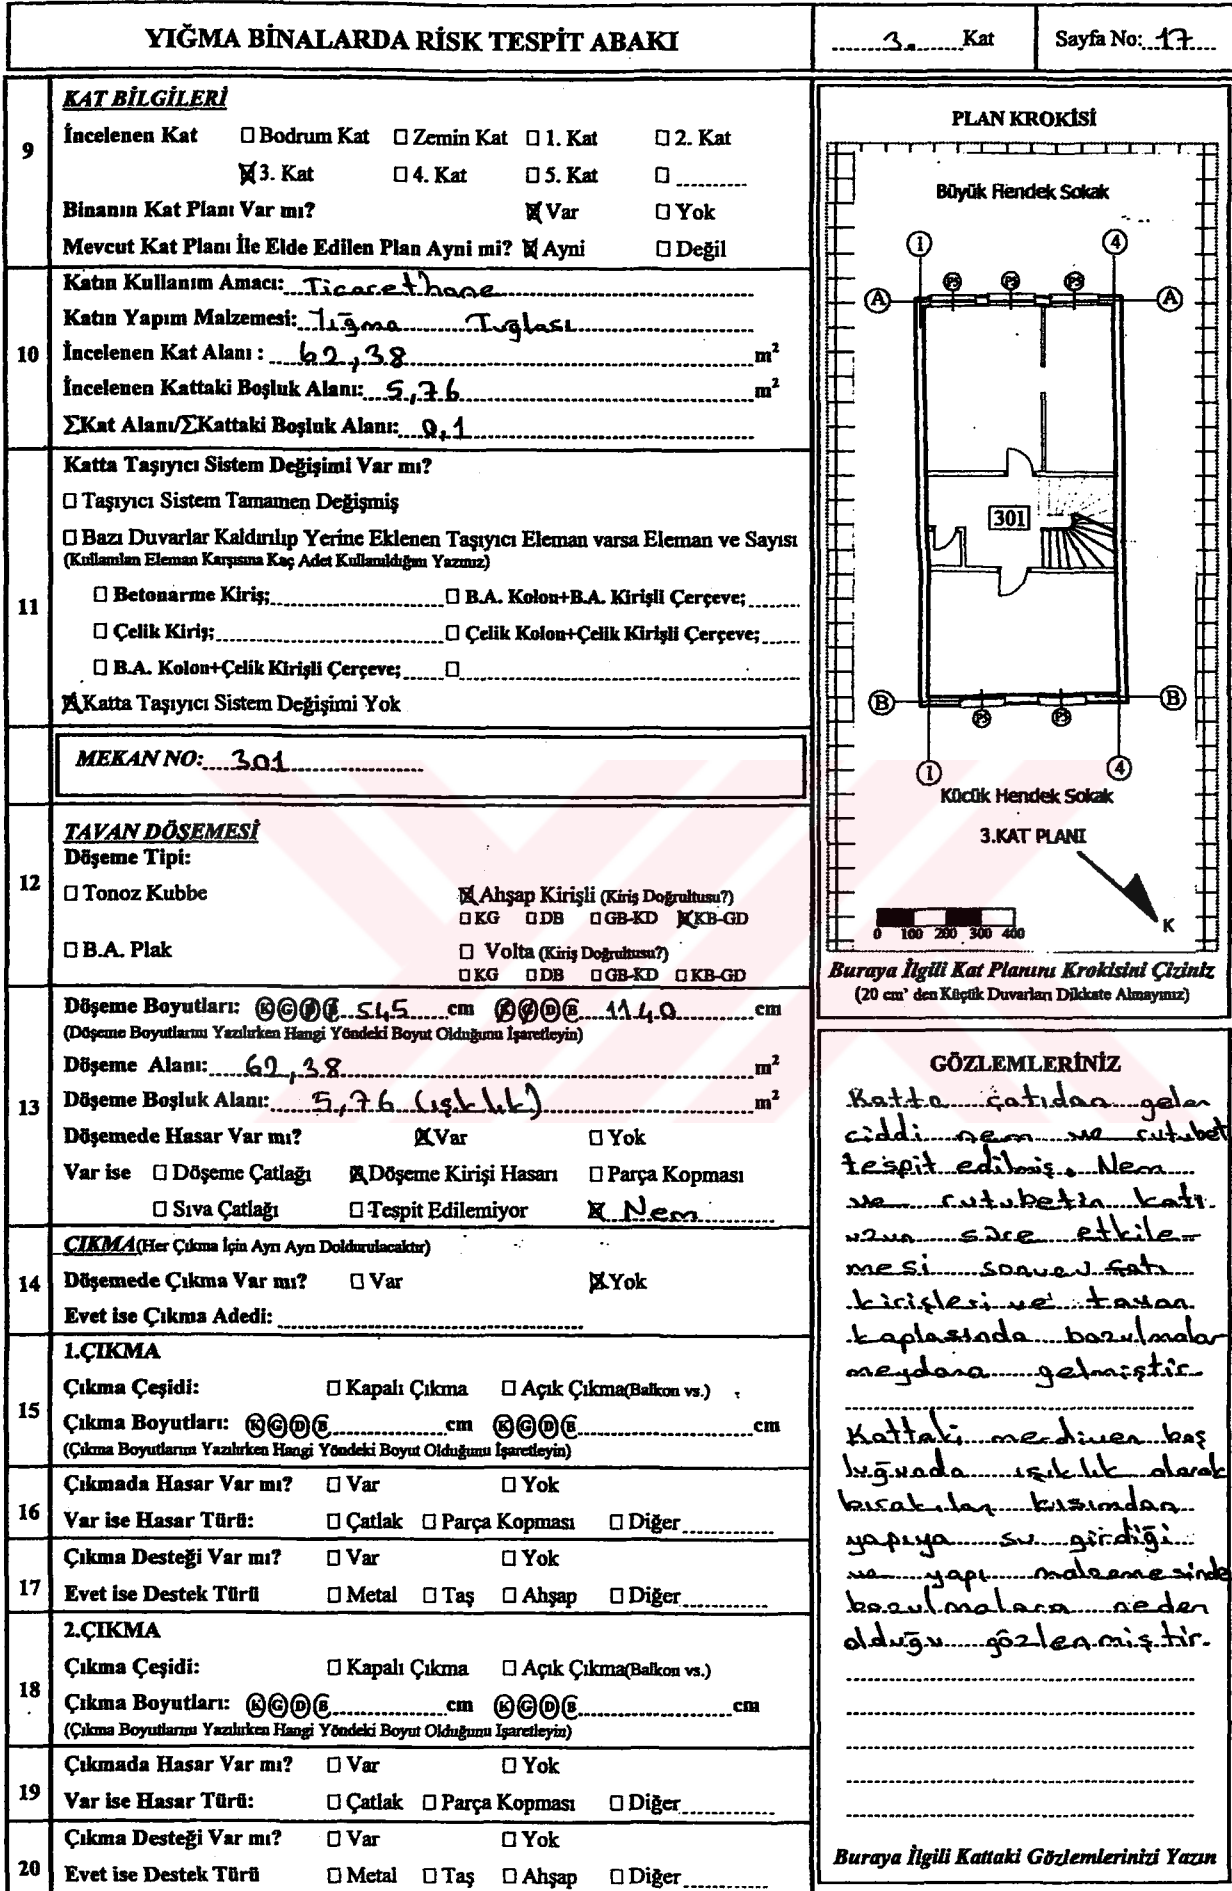 YIĞMA BİNALARDA RİSK TESPİT ABAKI
3. Kat
Sayfa No: 17
9
KAT BİLGİLERİ
İncelenen Kat □ Bodrum Kat □ Zemin Kat □ 1. Kat □ 2. Kat
☒ 3. Kat □ 4. Kat □ 5. Kat □
Binanın Kat Planı Var mı? ☒ Var □ Yok
Mevcut Kat Planı İle Elde Edilen Plan Ayni mi? ☒ Ayni □ Değil
10
Katın Kullanım Amacı: Ticarethane
Katın Yapım Malzemesi: Yığma Tuğlası
İncelenen Kat Alanı : 62,38 m²
İncelenen Kattaki Boşluk Alanı: 5,76 m²
ΣKat Alanı/ΣKattaki Boşluk Alanı: 0,1
11
Katta Taşıyıcı Sistem Değişimi Var mı?
□ Taşıyıcı Sistem Tamamen Değişmiş
□ Bazı Duvarlar Kaldırılıp Yerine Eklenen Taşıyıcı Eleman varsa Eleman ve Sayısı
(Kullanılan Eleman Karşısına Kaç Adet Kullanıldığını Yazınız)
□ Betonarme Kiriş; □ B.A. Kolon+B.A. Kirişli Çerçeve;
□ Çelik Kiriş; □ Çelik Kolon+Çelik Kirişli Çerçeve;
□ B.A. Kolon+Çelik Kirişli Çerçeve; □
☒ Katta Taşıyıcı Sistem Değişimi Yok
MEKAN NO: 301
12
TAVAN DÖŞEMESİ
Döşeme Tipi:
□ Tonoz Kubbe ☒ Ahşap Kirişli (Kiriş Doğrultusu?)
□ KG □ DB □ GB-KD ☒ KB-GD
□ B.A. Plak □ Volta (Kiriş Doğrultusu?)
□ KG □ DB □ GB-KD □ KB-GD
13
Döşeme Boyutları: K G D B 545 cm K G D B 1140 cm
(Döşeme Boyutlarını Yazılırken Hangi Yöndeki Boyut Olduğunu İşaretleyin)
Döşeme Alanı: 62,38 m²
Döşeme Boşluk Alanı: 5,76 (ışıklık) m²
Döşemede Hasar Var mı? ☒ Var □ Yok
Var ise □ Döşeme Çatlağı ☒ Döşeme Kirişi Hasarı □ Parça Kopması
□ Sıva Çatlağı □ Tespit Edilemiyor ☒ Nem
14
ÇIKMA (Her Çıkma İçin Ayrı Ayrı Doldurulacaktır)
Döşemede Çıkma Var mı? □ Var ☒ Yok
Evet ise Çıkma Adedi:
15
1.ÇIKMA
Çıkma Çeşidi: □ Kapalı Çıkma □ Açık Çıkma(Balkon vs.)
Çıkma Boyutları: K G D B cm K G D B cm
(Çıkma Boyutlarını Yazılırken Hangi Yöndeki Boyut Olduğunu İşaretleyin)
16
Çıkmada Hasar Var mı? □ Var □ Yok
Var ise Hasar Türü: □ Çatlak □ Parça Kopması □ Diğer
17
Çıkma Desteği Var mı? □ Var □ Yok
Evet ise Destek Türü □ Metal □ Taş □ Ahşap □ Diğer
18
2.ÇIKMA
Çıkma Çeşidi: □ Kapalı Çıkma □ Açık Çıkma(Balkon vs.)
Çıkma Boyutları: K G D B cm K G D B cm
(Çıkma Boyutlarını Yazılırken Hangi Yöndeki Boyut Olduğunu İşaretleyin)
19
Çıkmada Hasar Var mı? □ Var □ Yok
Var ise Hasar Türü: □ Çatlak □ Parça Kopması □ Diğer
20
Çıkma Desteği Var mı? □ Var □ Yok
Evet ise Destek Türü □ Metal □ Taş □ Ahşap □ Diğer
PLAN KROKİSİ
Büyük Hendek Sokak
1 4
P5 P5 P5
A A
301
B B
P5 P5
1 4
Kücük Hendek Sokak
3.KAT PLANI
K
0 100 200 300 400
Buraya İlgili Kat Planını Krokisini Çiziniz
(20 cm' den Küçük Duvarları Dikkate Almayınız)
GÖZLEMLERİNİZ
Katta çatıdan gelen
ciddi nem ve rutubet
tespit edilmiş. Nem
ve rutubetin katı
uzun süre etkile-
mesi sonucu çatı
kirişleri ve tavan
kaplasında bozulmalar
meydana gelmiştir.
Kattaki merdiven boş
luğunda ışıklık olarak
bırakılan kısımdan
yapıya su girdiği
ve yapı malzemesinde
bozulmalara neden
olduğu gözlenmiştir.
Buraya İlgili Kattaki Gözlemlerinizi Yazın